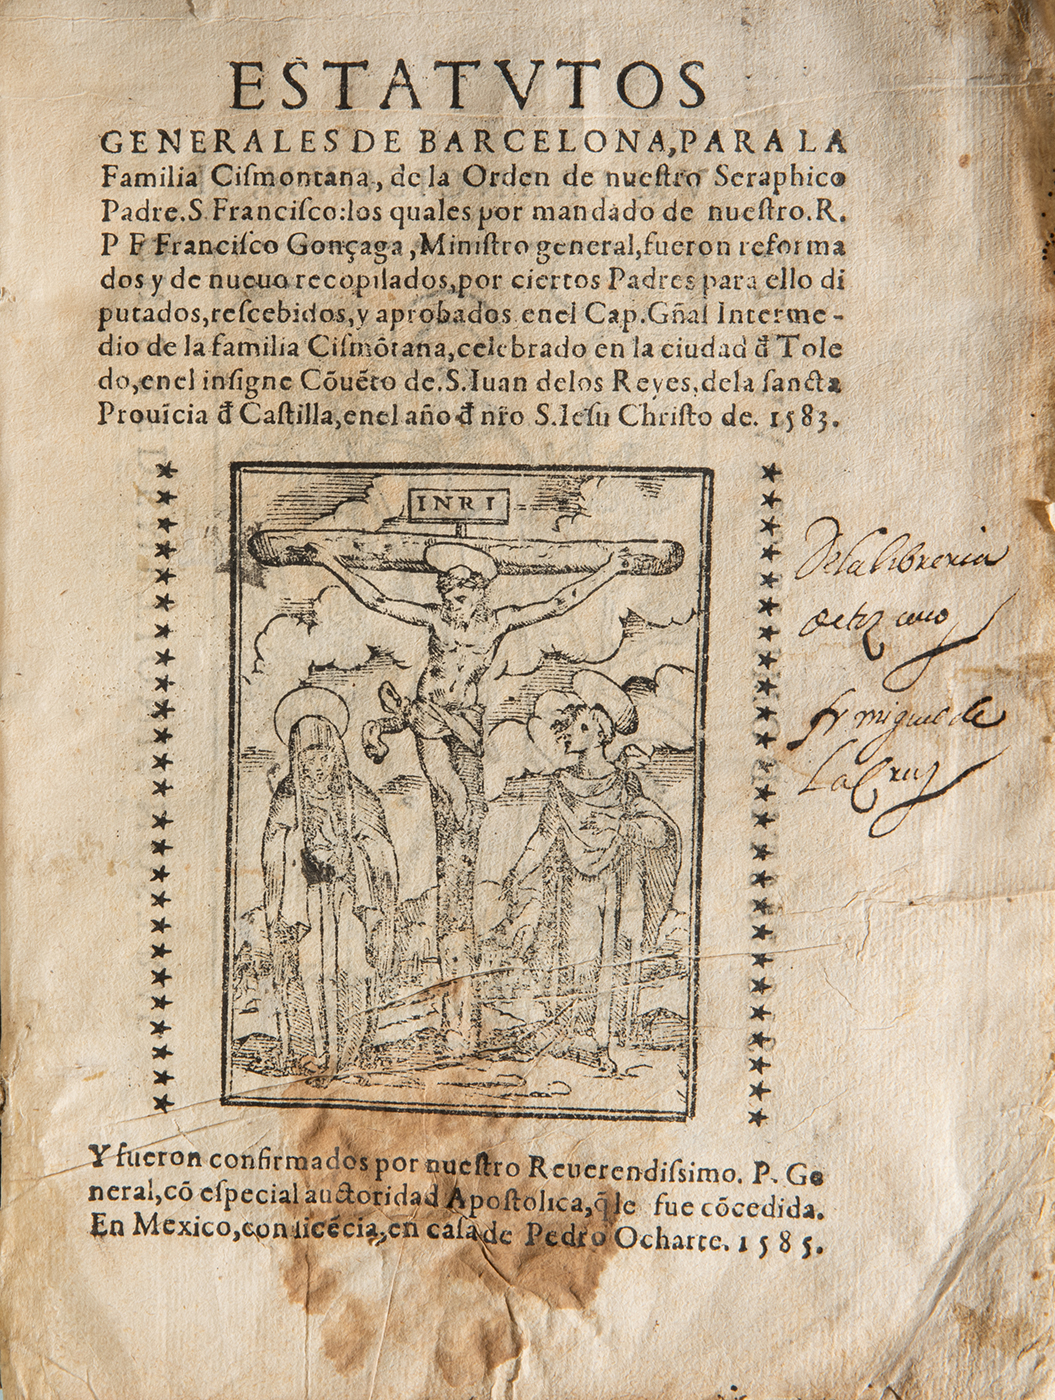 ESTATVTOS
GENERALES DE BARCELONA, PARA LA
Familia Ciſmontana, de la Orden de nueſtro Seraphico
Padre. S. Franciſco: los quales por mandado de nueſtro. R.
P F Franciſco Gonçaga, Miniſtro general, fueron reforma
dos y de nueuo recopilados, por ciertos Padres para ello di
putados, reſcebidos, y aprobados enel Cap. Gñal Interme-
dio de la familia Ciſmõtana, celebrado en la ciudad đ Tole
do, enel inſigne Cõuẽto de. S. Iuan delos Reyes, dela ſancta
Prouĩcia đ Caſtilla, enel año đ nr̃o S. Ieſu Chriſto de. 1583.
INRI
De la libreria
fr miguel de
La Cruz
Y fueron confirmados por nueſtro Reuerendiſsimo. P. Ge
neral, cõ eſpecial auctoridad Apoſtolica, q̃ le fue cõcedida.
En Mexico, con licẽcia, en caſa de Pedro Ocharte. 1585.